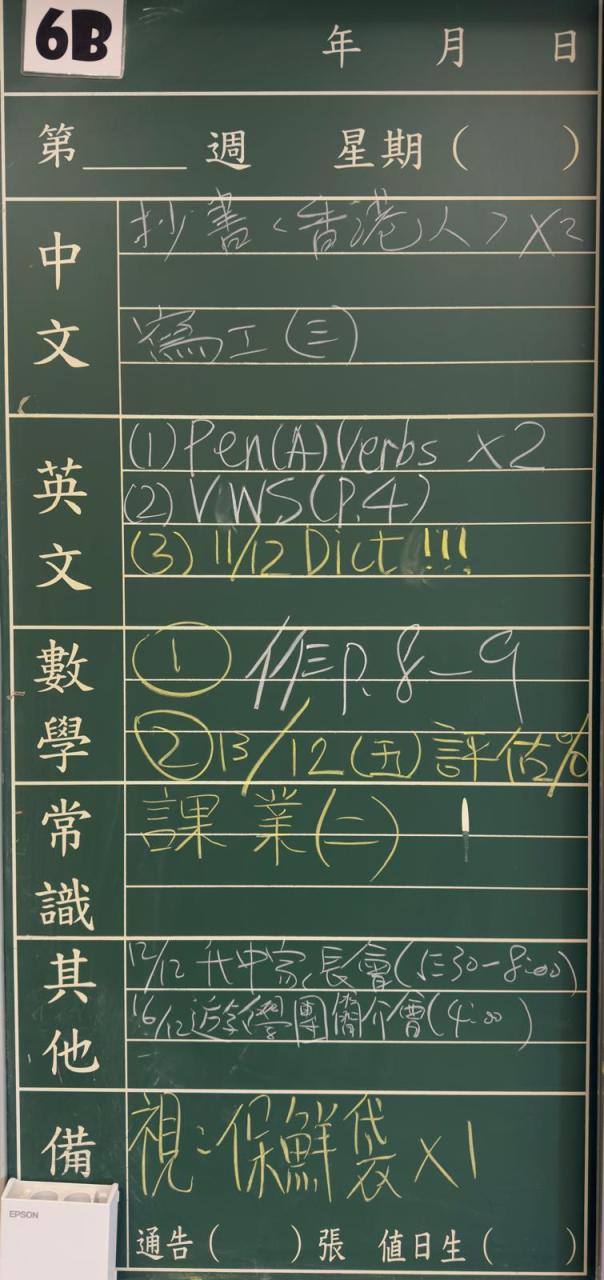 6B
年 月 日
第____週 星期( )
中文
抄書〈香港人〉X2
寫工(三)
英文
(1) Pen(A) Verbs x2
(2) VWS(P.4)
(3) 11/12 Dict !!!
數學
① 作三P.8-9
② 13/12(五)評估%
常識
課業(二)
其他
12/12 升中家長會(
30-8:00)
16/12 遊學團簡介會(4:00)
備
視:保鮮袋x1
EPSON
通告( )張 值日生( )